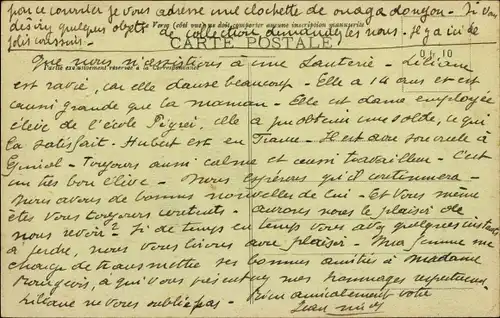 par ce courrier je vous adresse une clochette de
désirez quelques objets de collection demandez les nous. Il y a ici de
jolis
Le Verso (côté vue) ne doit comporter aucune inscription manuscrite
CARTE POSTALE
Partie exclusivement réservée à la Correspondance
0 10
que nous n'assistions à une Sauterie - Liliane
est ravie, car elle danse beaucoup. Elle a 14 ans et est
aussi grande que la maman - Elle est dame employée
élève de l'école elle a pu obtenir une solde, ce qui
la satisfait. Hubert est en France - Il est avec
- Toujours aussi calme et aussi travailleur - C'est
un très bon élève - Nous espérons qu'il continuera -
Nous avons de bonnes nouvelles de lui - Et vous même
êtes vous toujours contents - aurons nous le plaisir de
vous revoir? Si de temps en temps vous avez quelques instants
à perdre, nous vous lirons avec plaisir - Ma femme me
charge de transmettre ses bonnes amitiés à Madame
à qui vous présentez mes hommages respectueux
Liliane ne vous oublie pas - Bien amicalement votre
Jean